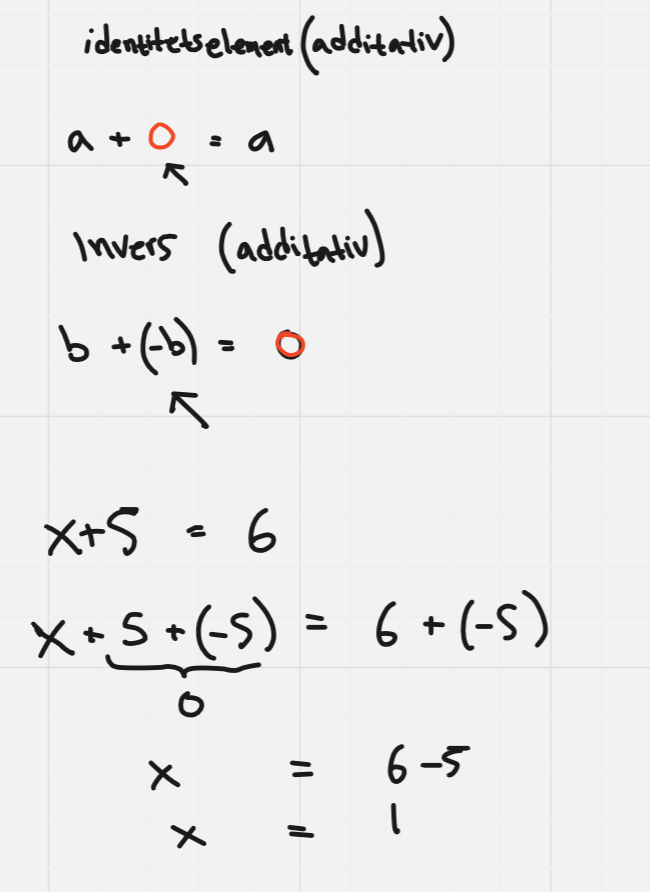 identitetselement (additativ)
a + 0 = a
Invers (additativ)
b + (-b) = 0
x+5 = 6
x + 5 + (-5) = 6 + (-5)
0
x = 6-5
x = 1